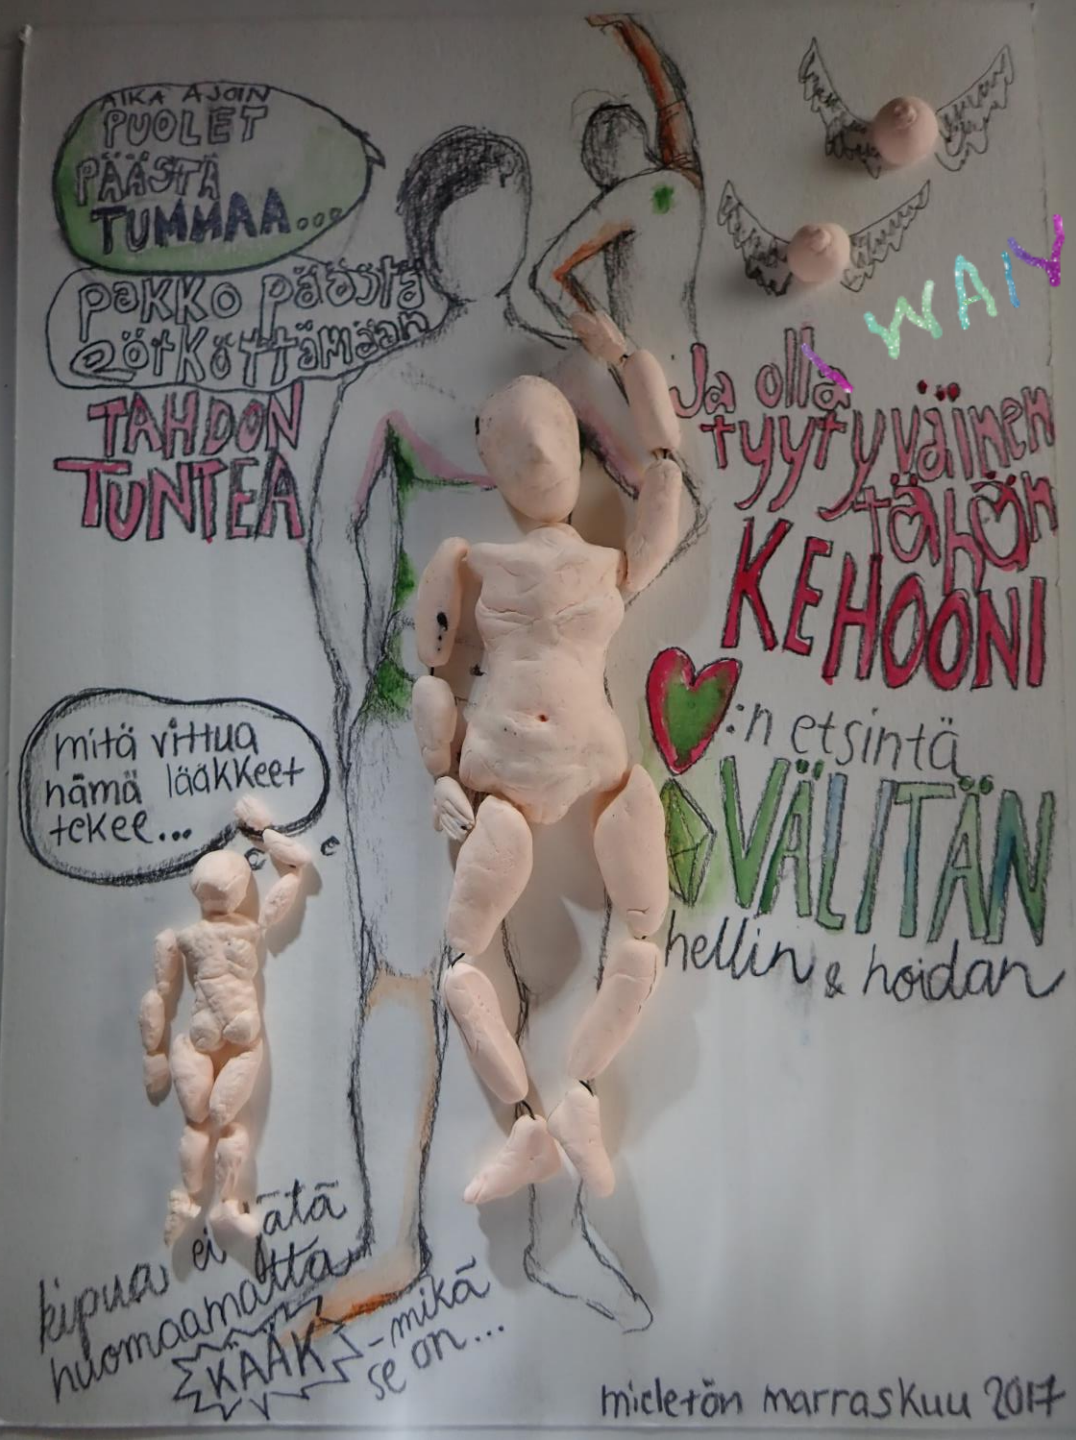 AIKA AJOIN
PUOLET
PÄÄSTÄ
TUMMAA...
pakko päästä
götköttämään
TAHDON
TUNTEA
WAIV
Ja olla
tyytyväinen
tähän
KEHOONI
:n etsintä
VÄLITÄN
hellin & hoidan
mitä vittua
nämä lääkkeet
tekee...
kipua ei ätä
huomaamatta
KÄÄK -mikä
se on...
mieletön marraskuu 2017